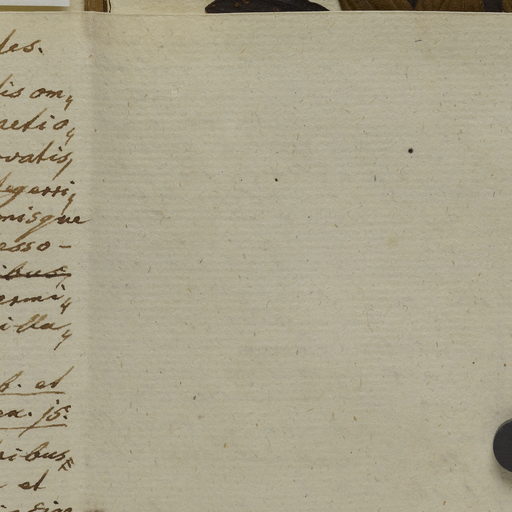 des.
lis om„
petio„
vatis,
tegerri„
onisque
esso-
ibus,
ermi„
illa„
b. et
ea. js:
nibus,
et